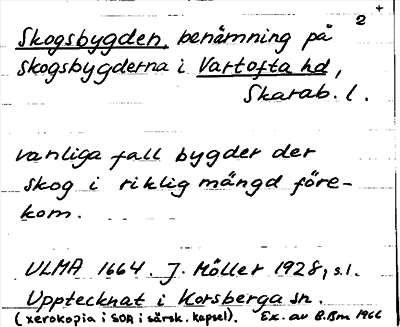 2 +
Skogsbygden, benämning på
skogsbygderna i Vartofta hd,
Skarab. l.
vanliga fall bygder der
skog i riklig mängd före-
kom.
ULMA 1664. J. Möller 1928, s.1.
Upptecknat i Korsberga sn.
(xerokopia i SOA i särsk. kapsel). Ex. av B.Bm 1966